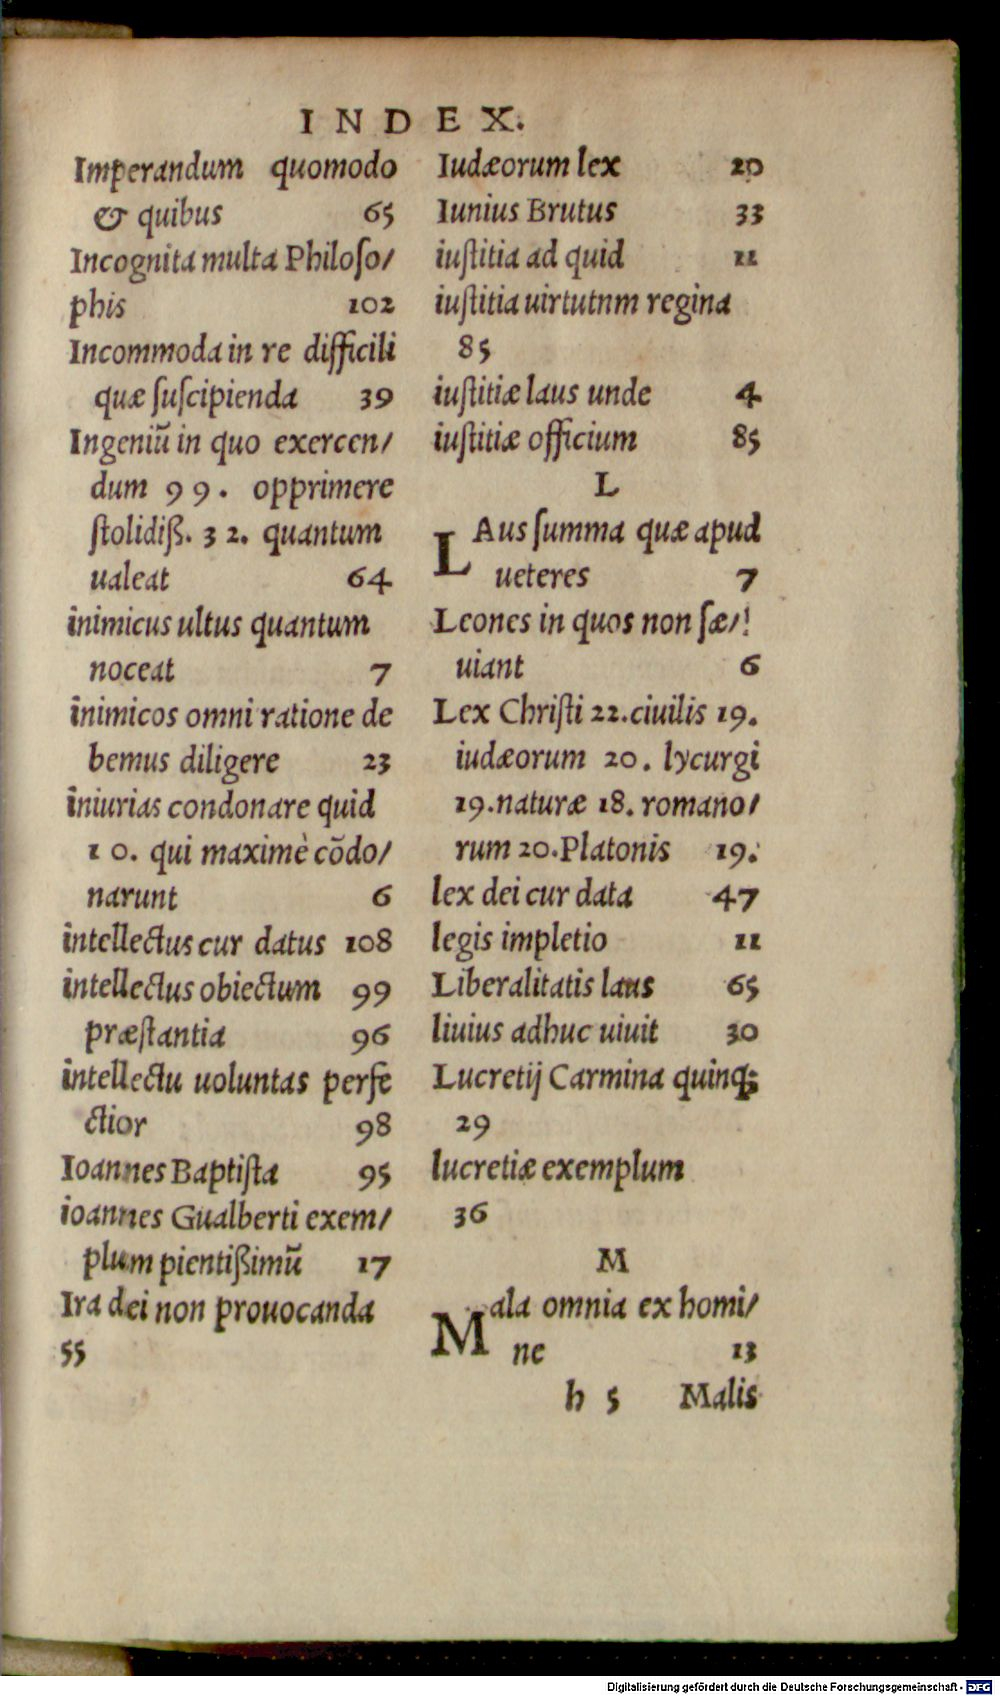 INDEX.
Imperandum quomodo
& quibus 65
Incognita multa Philoſo/
phis 102
Incommoda in re difficili
quæ ſuſcipienda 39
Ingeniū in quo exercen/
dum 99. opprimere
ſtolidiß. 32. quantum
ualeat 64
inimicus ultus quantum
noceat 7
inimicos omni ratione de
bemus diligere 23
iniurias condonare quid
10. qui maximè cōdo/
narunt 6
intellectus cur datus 108
intellectus obiectum 99
præſtantia 96
intellectu uoluntas perfe
ctior 98
Ioannes Baptiſta 95
ioannes Gualberti exem/
plum pientißimū 17
Ira dei non prouocanda
55
Iudæorum lex 20
Iunius Brutus 33
iuſtitia ad quid 11
iuſtitia uirtutnm regina
85
iuſtitiæ laus unde 4
iuſtitiæ officium 85
L
LAus ſumma quæ apud
ueteres 7
Leones in quos non ſæ/!
uiant 6
Lex Chriſti 22. ciuilis 19.
iudæorum 20. lycurgi
19. naturæ 18. romano/
rum 20. Platonis 19.
lex dei cur data 47
legis impletio 11
Liberalitatis laus 65
liuius adhuc uiuit 30
Lucretij Carmina quinq;
29
lucretiæ exemplum
36
M
Mala omnia ex homi/
ne 13
h 5 Malis
Digitalisierung gefördert durch die Deutsche Forschungsgemeinschaft - DFG